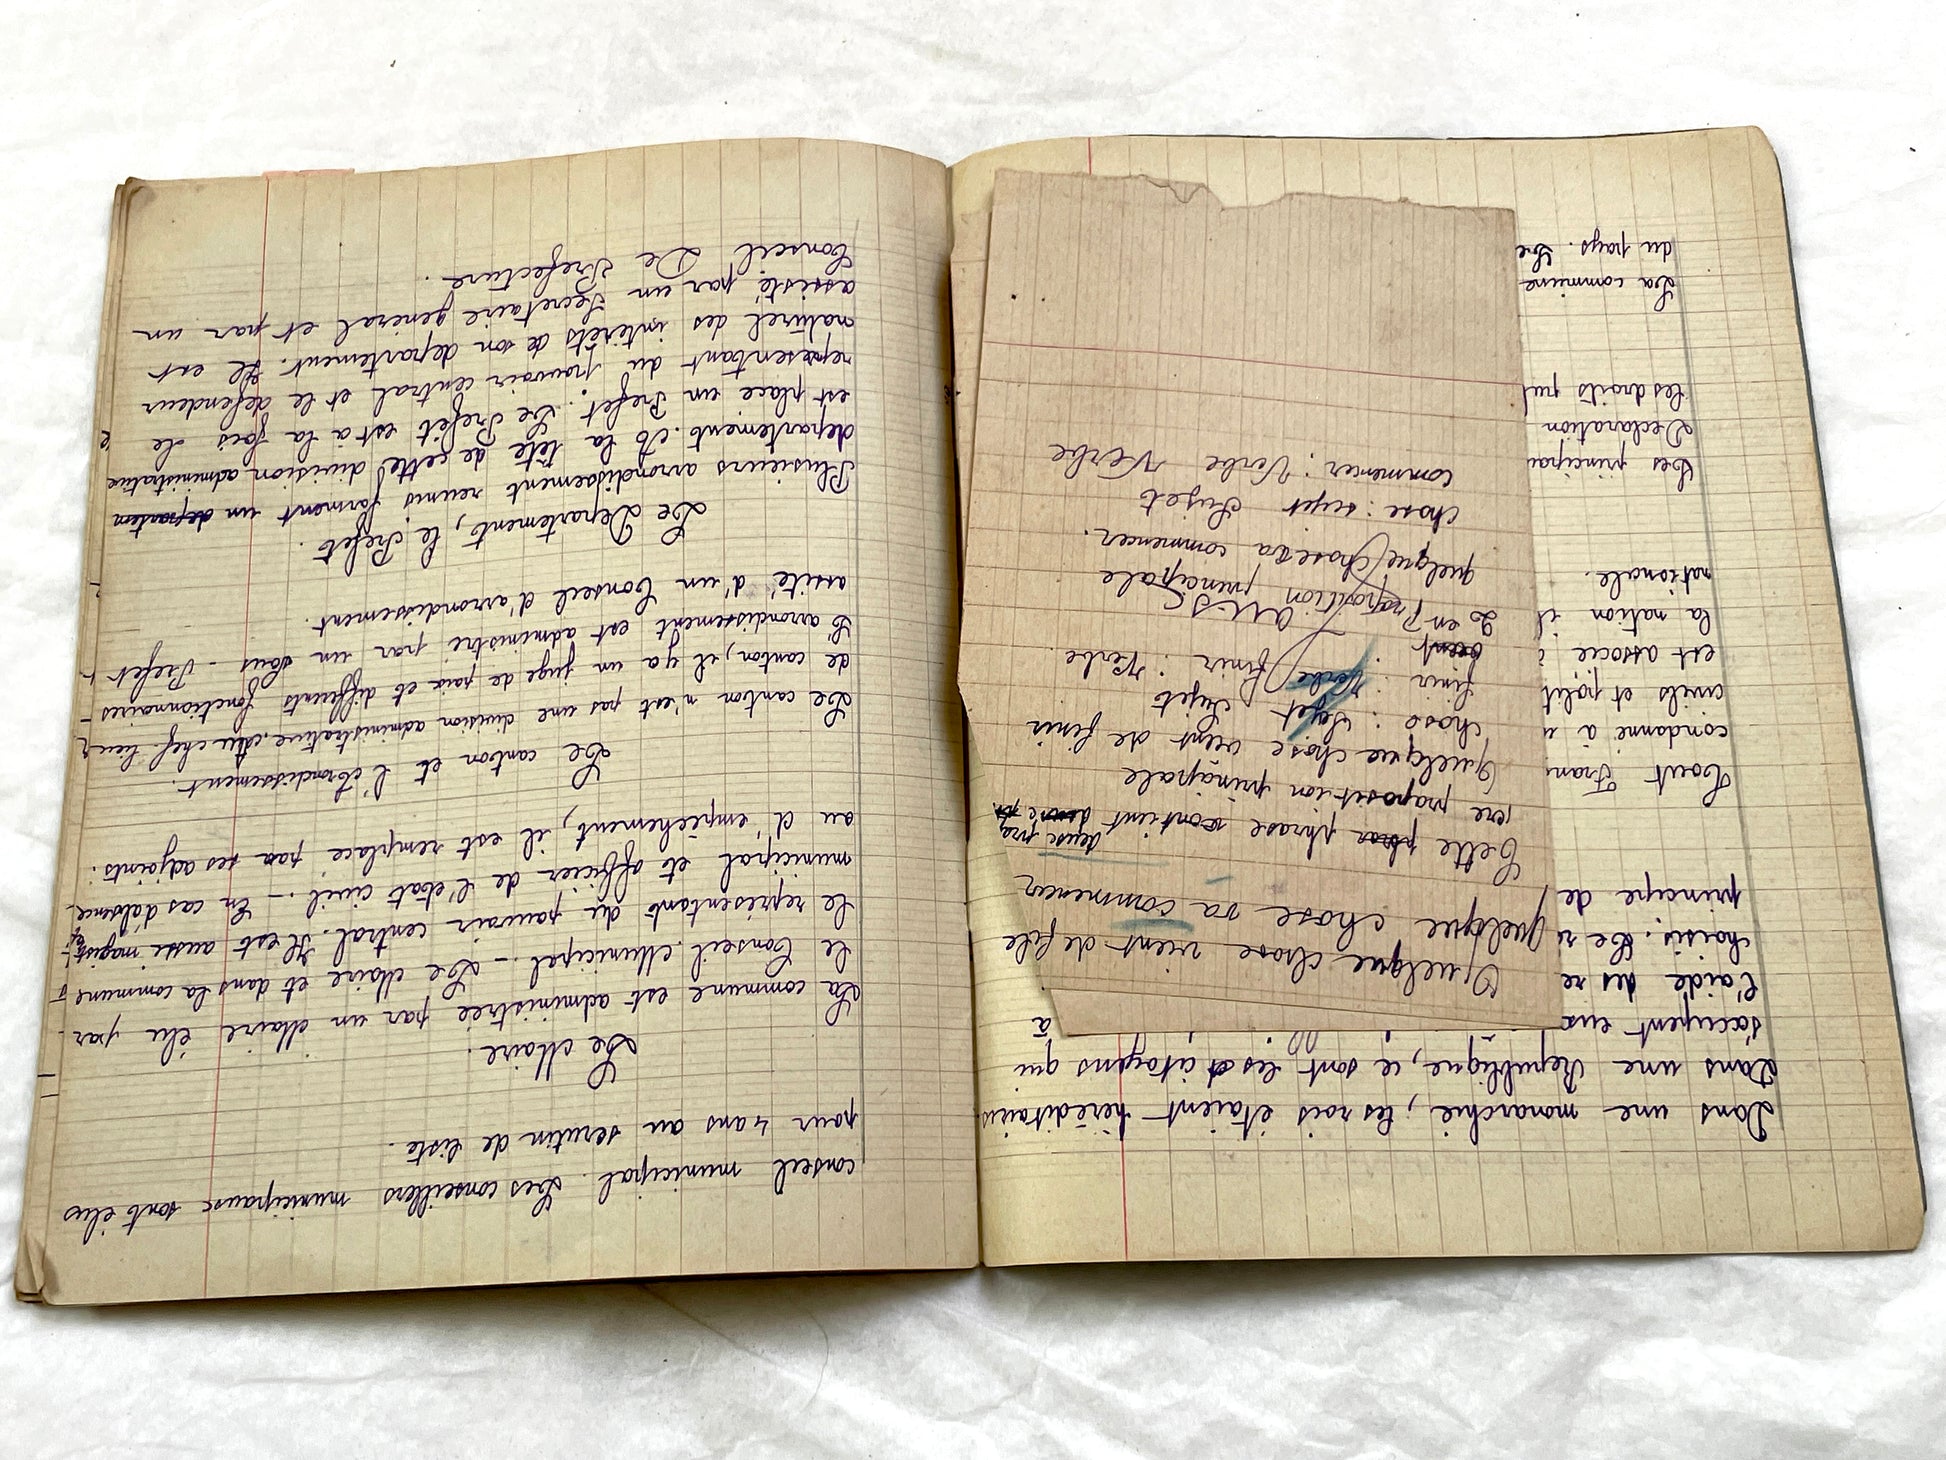 Dans une monarchie, les rois étaient héréditaires
Dans une République, ce sont les citoyens qui
s'occupent eux à
l'aide des re
choisis. Ce re
principe de
Tout Fran
condanné à
civils et polit
est associé
la nation il
nationale.
Les principau
Declaration
les droits pu
La commune
du pays. Le
Quelque chose vient de
quelque chose va commencer
Cette phrase contient deux pro
ere proposition principale
Quelque chose vient de finir
chose : Sujet Sujet
finir : Verbe finir : Verbe.
2e en Proposition principale
quelque chose va commencer.
chose : sujet Sujet
commencer : Verbe Verbe
conseil municipal. Les conseillers municipaux sont élus
pour 4 ans au scrutin de liste.
Le Maire.
La commune est administrée par un Maire élu par
le Conseil Municipal. - Le Maire et dans la commune
le représentant du pouvoir central. Il est aussi magist
municipal et officier de l'état civil. - En cas d'absence
au d'empêchement, il est remplace par ses adjoints.
Le canton et l'Arrondissement.
Le canton n'est pas une division administrative. Au chef-lieu
de canton, il y a un juge de paix et différents fonctionnaires
L'arrondissement est administre par un Sous-Prefet
assité d'un Conseil d'arrondissement.
Le Departement, le Prefet.
Plusieurs arrondissement reunis forment un departem
departement. A la tête de cette division administrative
est place un Prefet. Le Prefet est a la fois le
representant du pouvoir central et le defendeur
naturel des interêts de son departement. Il est
assisté par un Secretaire general et par un
Conseil De Prefecture.